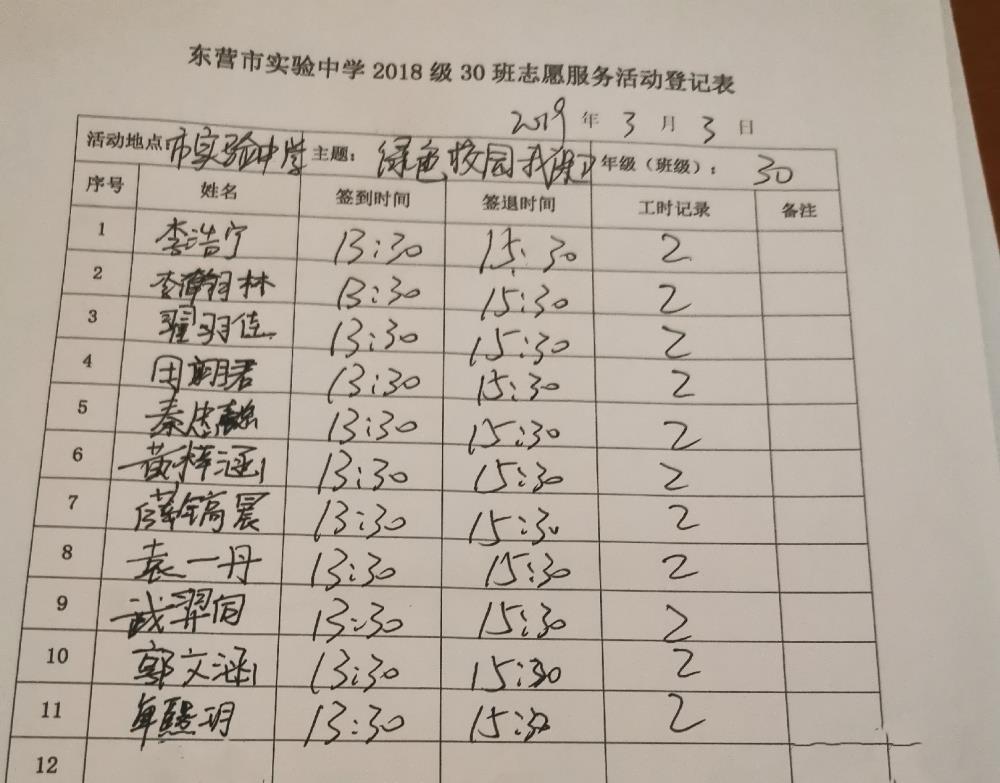 东营市实验中学2018级30班志愿服务活动登记表
2019年3月3日
活动地点:市实验中学 主题:绿色校园我 年级(班级):30
序号 姓名 签到时间 签退时间 工时记录 备注
1 李浩宁 13:30 15:30 2
2 李 林 13:30 15:30 2
3 翟羽佳 13:30 15:30 2
4 田朝君 13:30 15:30 2
5 秦忠 13:30 15:30 2
6 黄梓涵 13:30 15:30 2
7 薛镐晨 13:30 15:30 2
8 袁一丹 13:30 15:30 2
9 武羿同 13:30 15:30 2
10 郭文涵 13:30 15:30 2
11 牟 玥 13:30 15:30 2
12